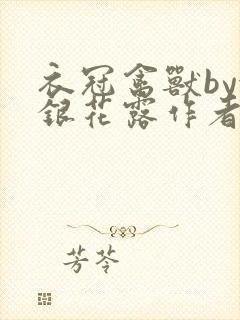 衣冠禽獸by
銀花露作者
芳苓